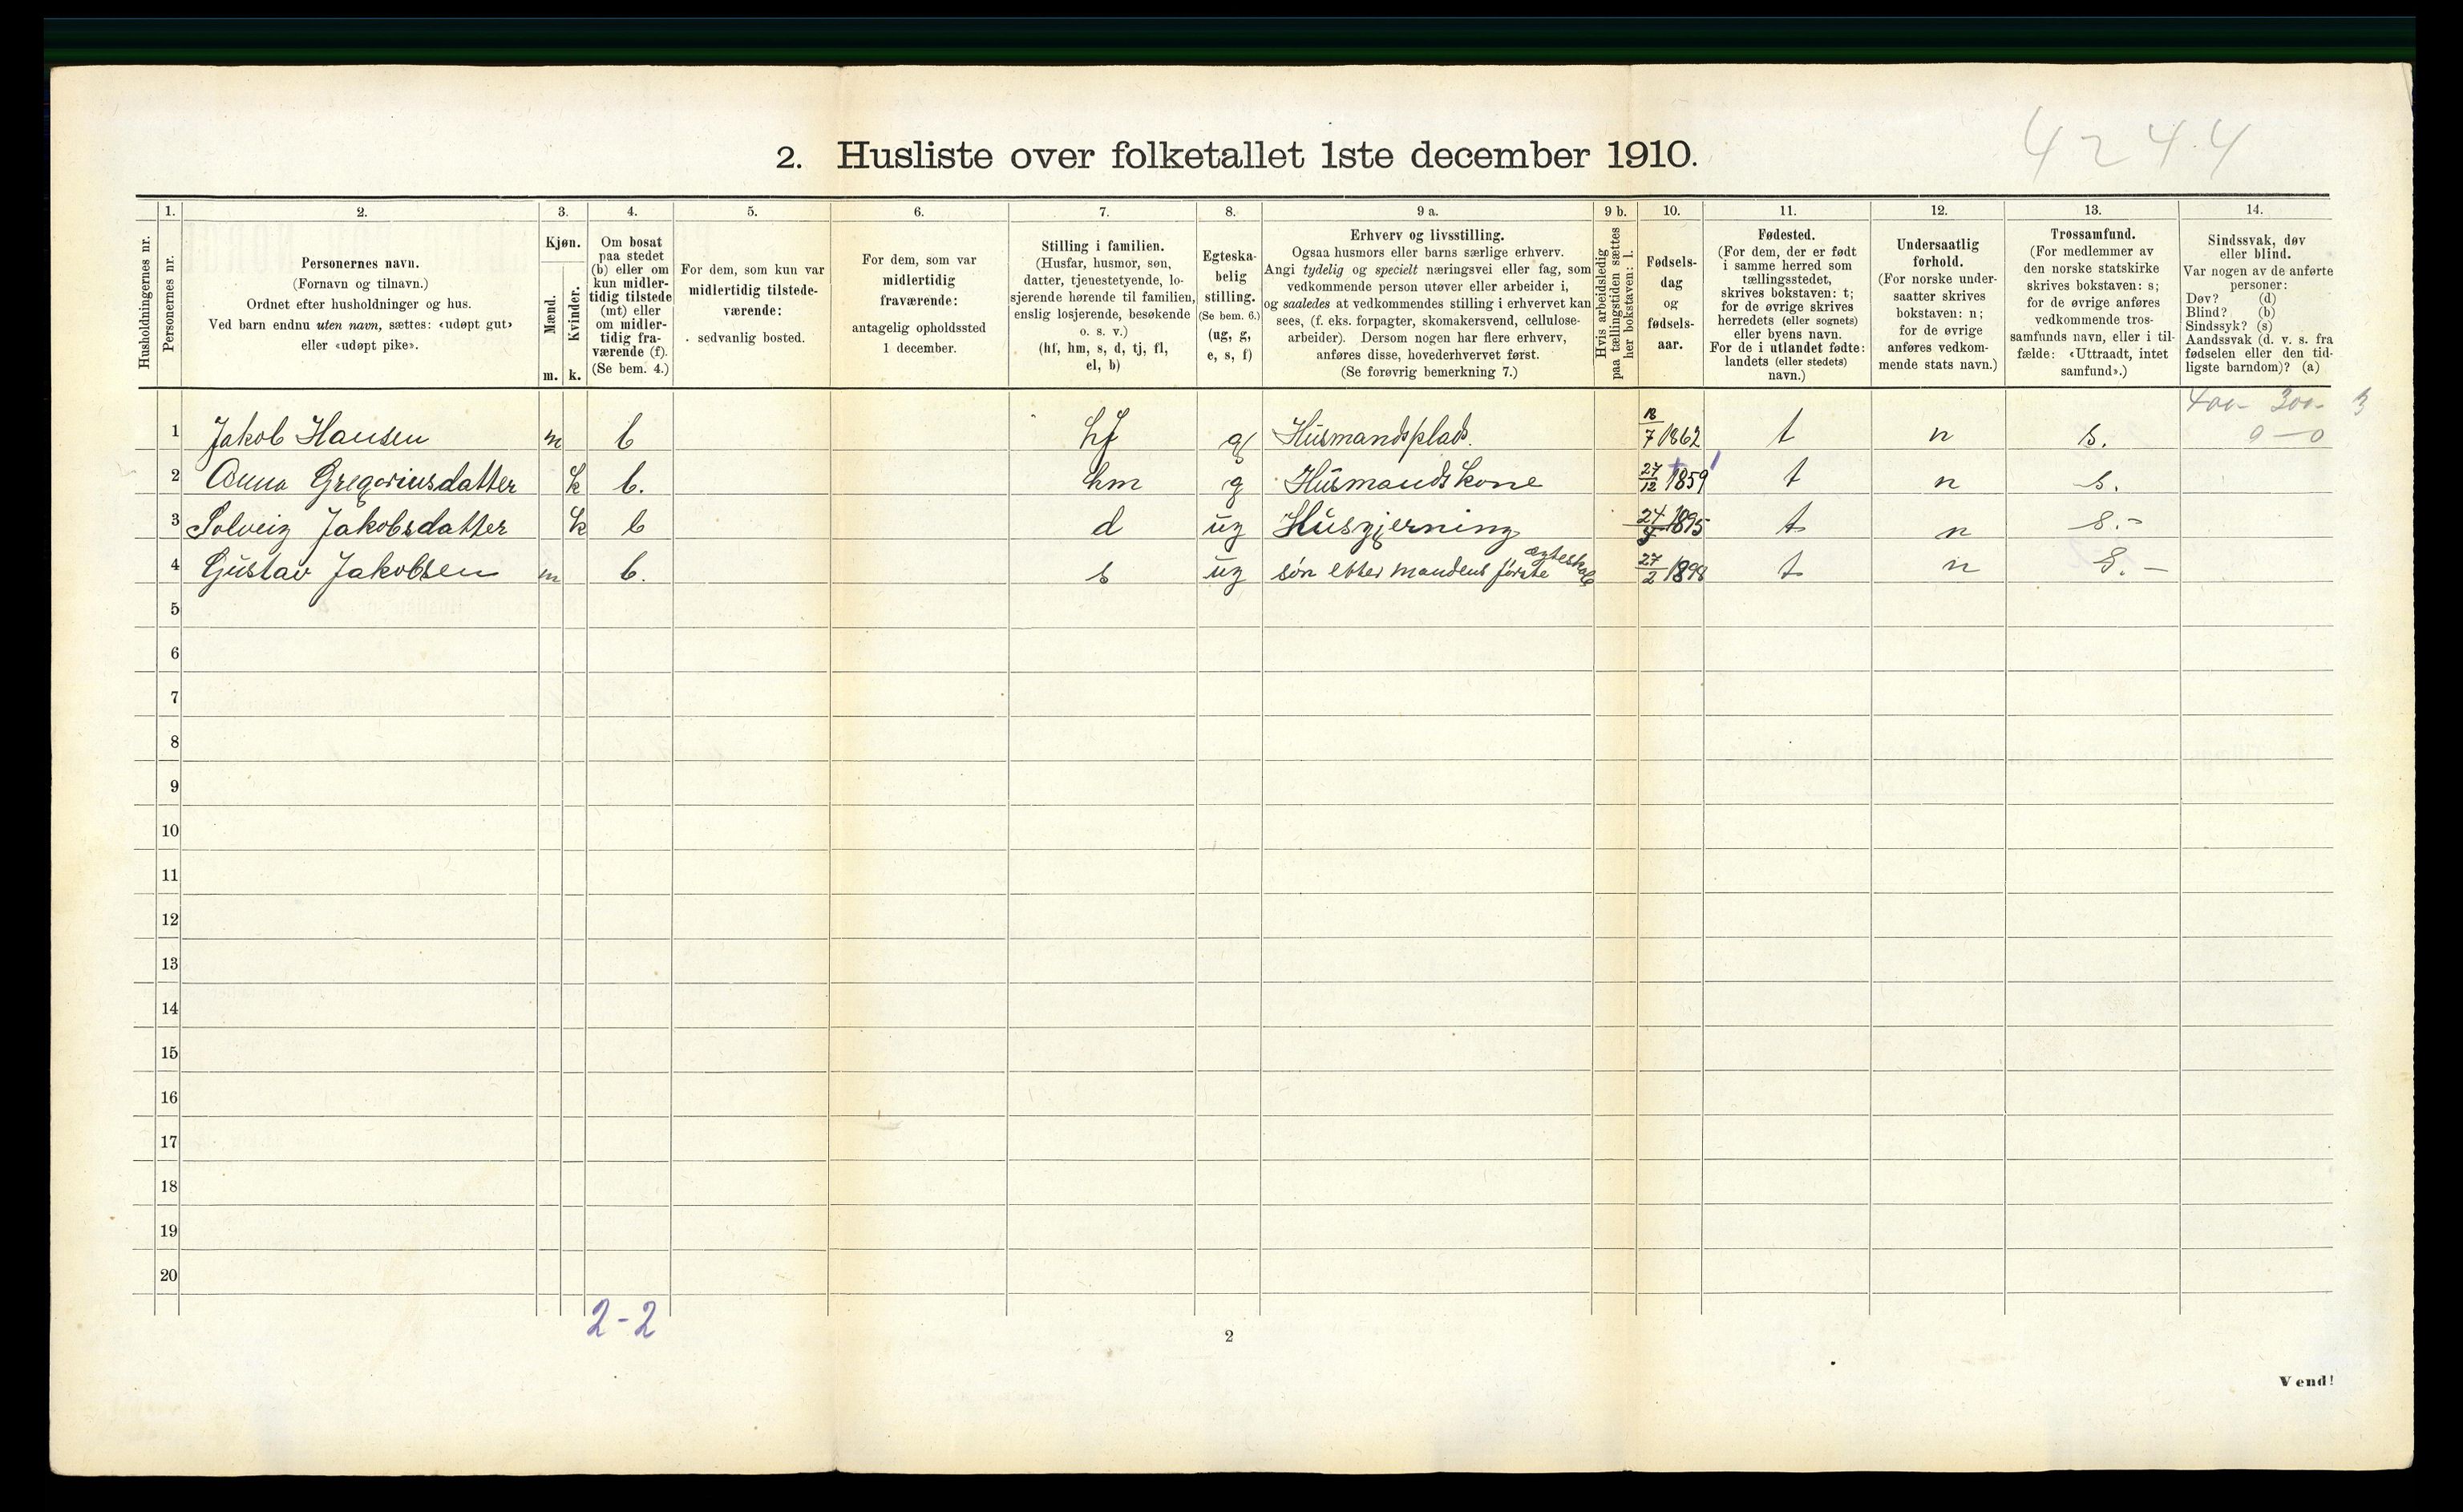 4244
2. Husliste over folketallet 1ste december 1910.
Husholdningernes nr.
1.
Personernes nr.
2.
Personernes navn.
(Fornavn og tilnavn.)
Ordnet efter husholdninger og hus.
Ved barn endnu uten navn, sættes: «udøpt gut»
eller «udøpt pike».
3.
Kjøn.
Mænd.
Kvinder.
m. k.
4.
Om bosat
paa stedet
(b) eller om
kun midler-
tidig tilstede
(mt) eller
om midler-
tidig fra-
værende (f).
(Se bem. 4.)
5.
For dem, som kun var
midlertidig tilstede-
værende:
sedvanlig bosted.
6.
For dem, som var
midlertidig
fraværende:
antagelig opholdssted
1 december.
7.
Stilling i familien.
(Husfar, husmor, søn,
datter, tjenestetyende, lo-
sjerende hørende til familien,
enslig losjerende, besøkende
o. s. v.)
(hf, hm, s, d, tj, fl,
el, b)
8.
Egteska-
belig
stilling.
(Se bem. 6.)
(ug, g,
e, s, f)
9 a.
Erhverv og livsstilling.
Ogsaa husmors eller barns særlige erhverv.
Angi tydelig og specielt næringsvei eller fag, som
vedkommende person utøver eller arbeider i,
og saaledes at vedkommendes stilling i erhvervet kan
sees, (f. eks. forpagter, skomakersvend, cellulose-
arbeider). Dersom nogen har flere erhverv,
anføres disse, hovederhvervet først.
(Se forøvrig bemerkning 7.)
9 b.
Hvis arbeidsledig
paa tællingstiden sættes
her bokstaven: l.
10.
Fødsels-
dag
og
fødsels-
aar.
11.
Fødested.
(For dem, der er født
i samme herred som
tællingsstedet,
skrives bokstaven: t;
for de øvrige skrives
herredets (eller sognets)
eller byens navn.
For de i utlandet fødte:
landets (eller stedets)
navn.)
12.
Undersaatlig
forhold.
(For norske under-
saatter skrives
bokstaven: n;
for de øvrige
anføres vedkom-
mende stats navn.)
13.
Trossamfund.
(For medlemmer av
den norske statskirke
skrives bokstaven: s;
for de øvrige anføres
vedkommende tros-
samfunds navn, eller i til-
fælde: «Uttraadt, intet
samfund».)
14.
Sindssvak, døv
eller blind.
Var nogen av de anførte
personer:
Døv? (d)
Blind? (b)
Sindssyk? (s)
Aandssvak (d. v. s. fra
fødselen eller den tid-
ligste barndom)? (a)
400- 300- 3
0 - 0
1 Jakob Hansen m b hf g Husmandsplads. 18/7 1862 t n s.
2 Anna Gregoriusdatter k b. hm g Husmandskone 27/12 1859 t n s.
3 Solveig Jakobsdatter k b d ug Husgjerning 24 1895 t n s.-
4 Gustav Jakobsen m b. s ug søn efter mandens første ægteskab 27/2 1898 t n S. -
5
6
7
8
9
10
11
12
13
14
15
16
17
18
19
20
2-2
2
Vend!